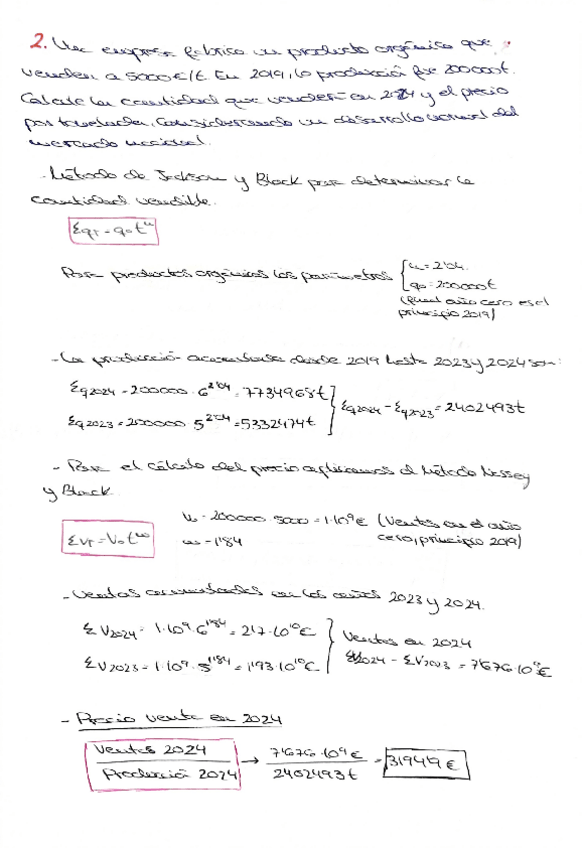 2. Una empresa fabrica un producto orgánico que
venden a 5000€/t. En 2019, la producción fue 200000t.
Calcule la cantidad que venderá en 2024 y el precio
por tonelada, considerando un desarrollo normal del
mercado nacional.
- Método de Jackson y Black para determinar la
cantidad vendible.
Σqт = q₀tᵘ
Para productos orgánicos los parámetros { u = 2'04.
q₀ = 200000t
(Qual año cero es el
principio 2019)
- La producción acumulada desde 2019 hasta 2023 y 2024 son:
Σq2024 = 200000 · 6^2'04 = 7734968t
Σq2023 = 200000 5^2'04 = 5332474t } Σq2024 - Σq2023 = 2402493t
- Para el cálculo del precio aplicamos el Método Nessey
y Black.
V₀ = 200000 · 5000 = 1·10⁹€ (Ventas en el año
cero, principio 2019)
ΣVт = V₀tʷ
w = 1'84
- Ventas acumuladas en los años 2023 y 2024.
ΣV2024 = 1·10⁹·6^1'84 = 2'17·10¹⁰€
ΣV2023 = 1·10⁹·5^1'84 = 1'93·10¹⁰€ } Ventas en 2024
ΣV2024 - ΣV2023 = 7'676·10⁹€
- Precio venta en 2024
Ventas 2024 / Producción 2024 → 7'676·10⁹€ / 2402493t = 3194'49€